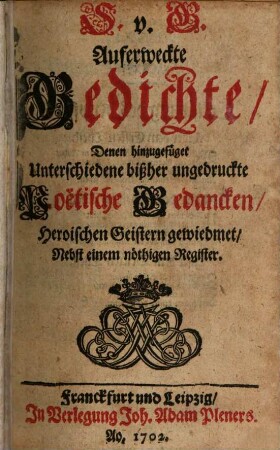 F. v. B.
Auferweckte
Gedichte/
Denen hinzugefüget
Unterschiedene bißher ungedruckte
Poëtische Gedancken/
Heroischen Geistern gewiedmet/
Nebst einem nöthigen Register.
Franckfurt und Leipzig/
In Verlegung Joh. Adam Pleners.
Ao. 1702.